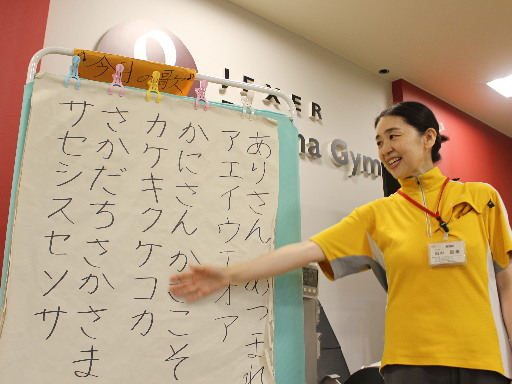 今月の歌
ありさん あつまれ
アエイウエオア
かにさん か こそ
カケキクケコカ
さかだちさかさま
サセシスセソサ
JEXER
Gym